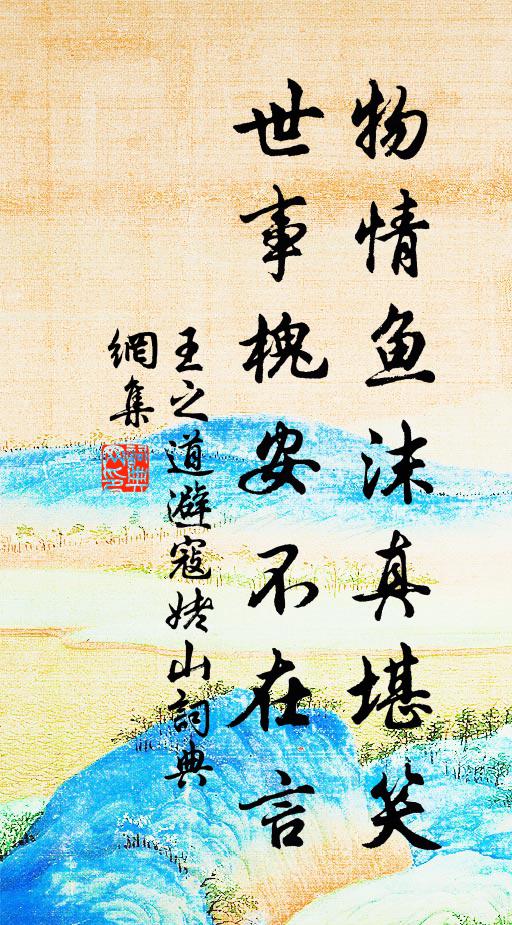 物情鱼沫真堪笑
世事槐安不在言
王之道避寇姥山詞典
網集